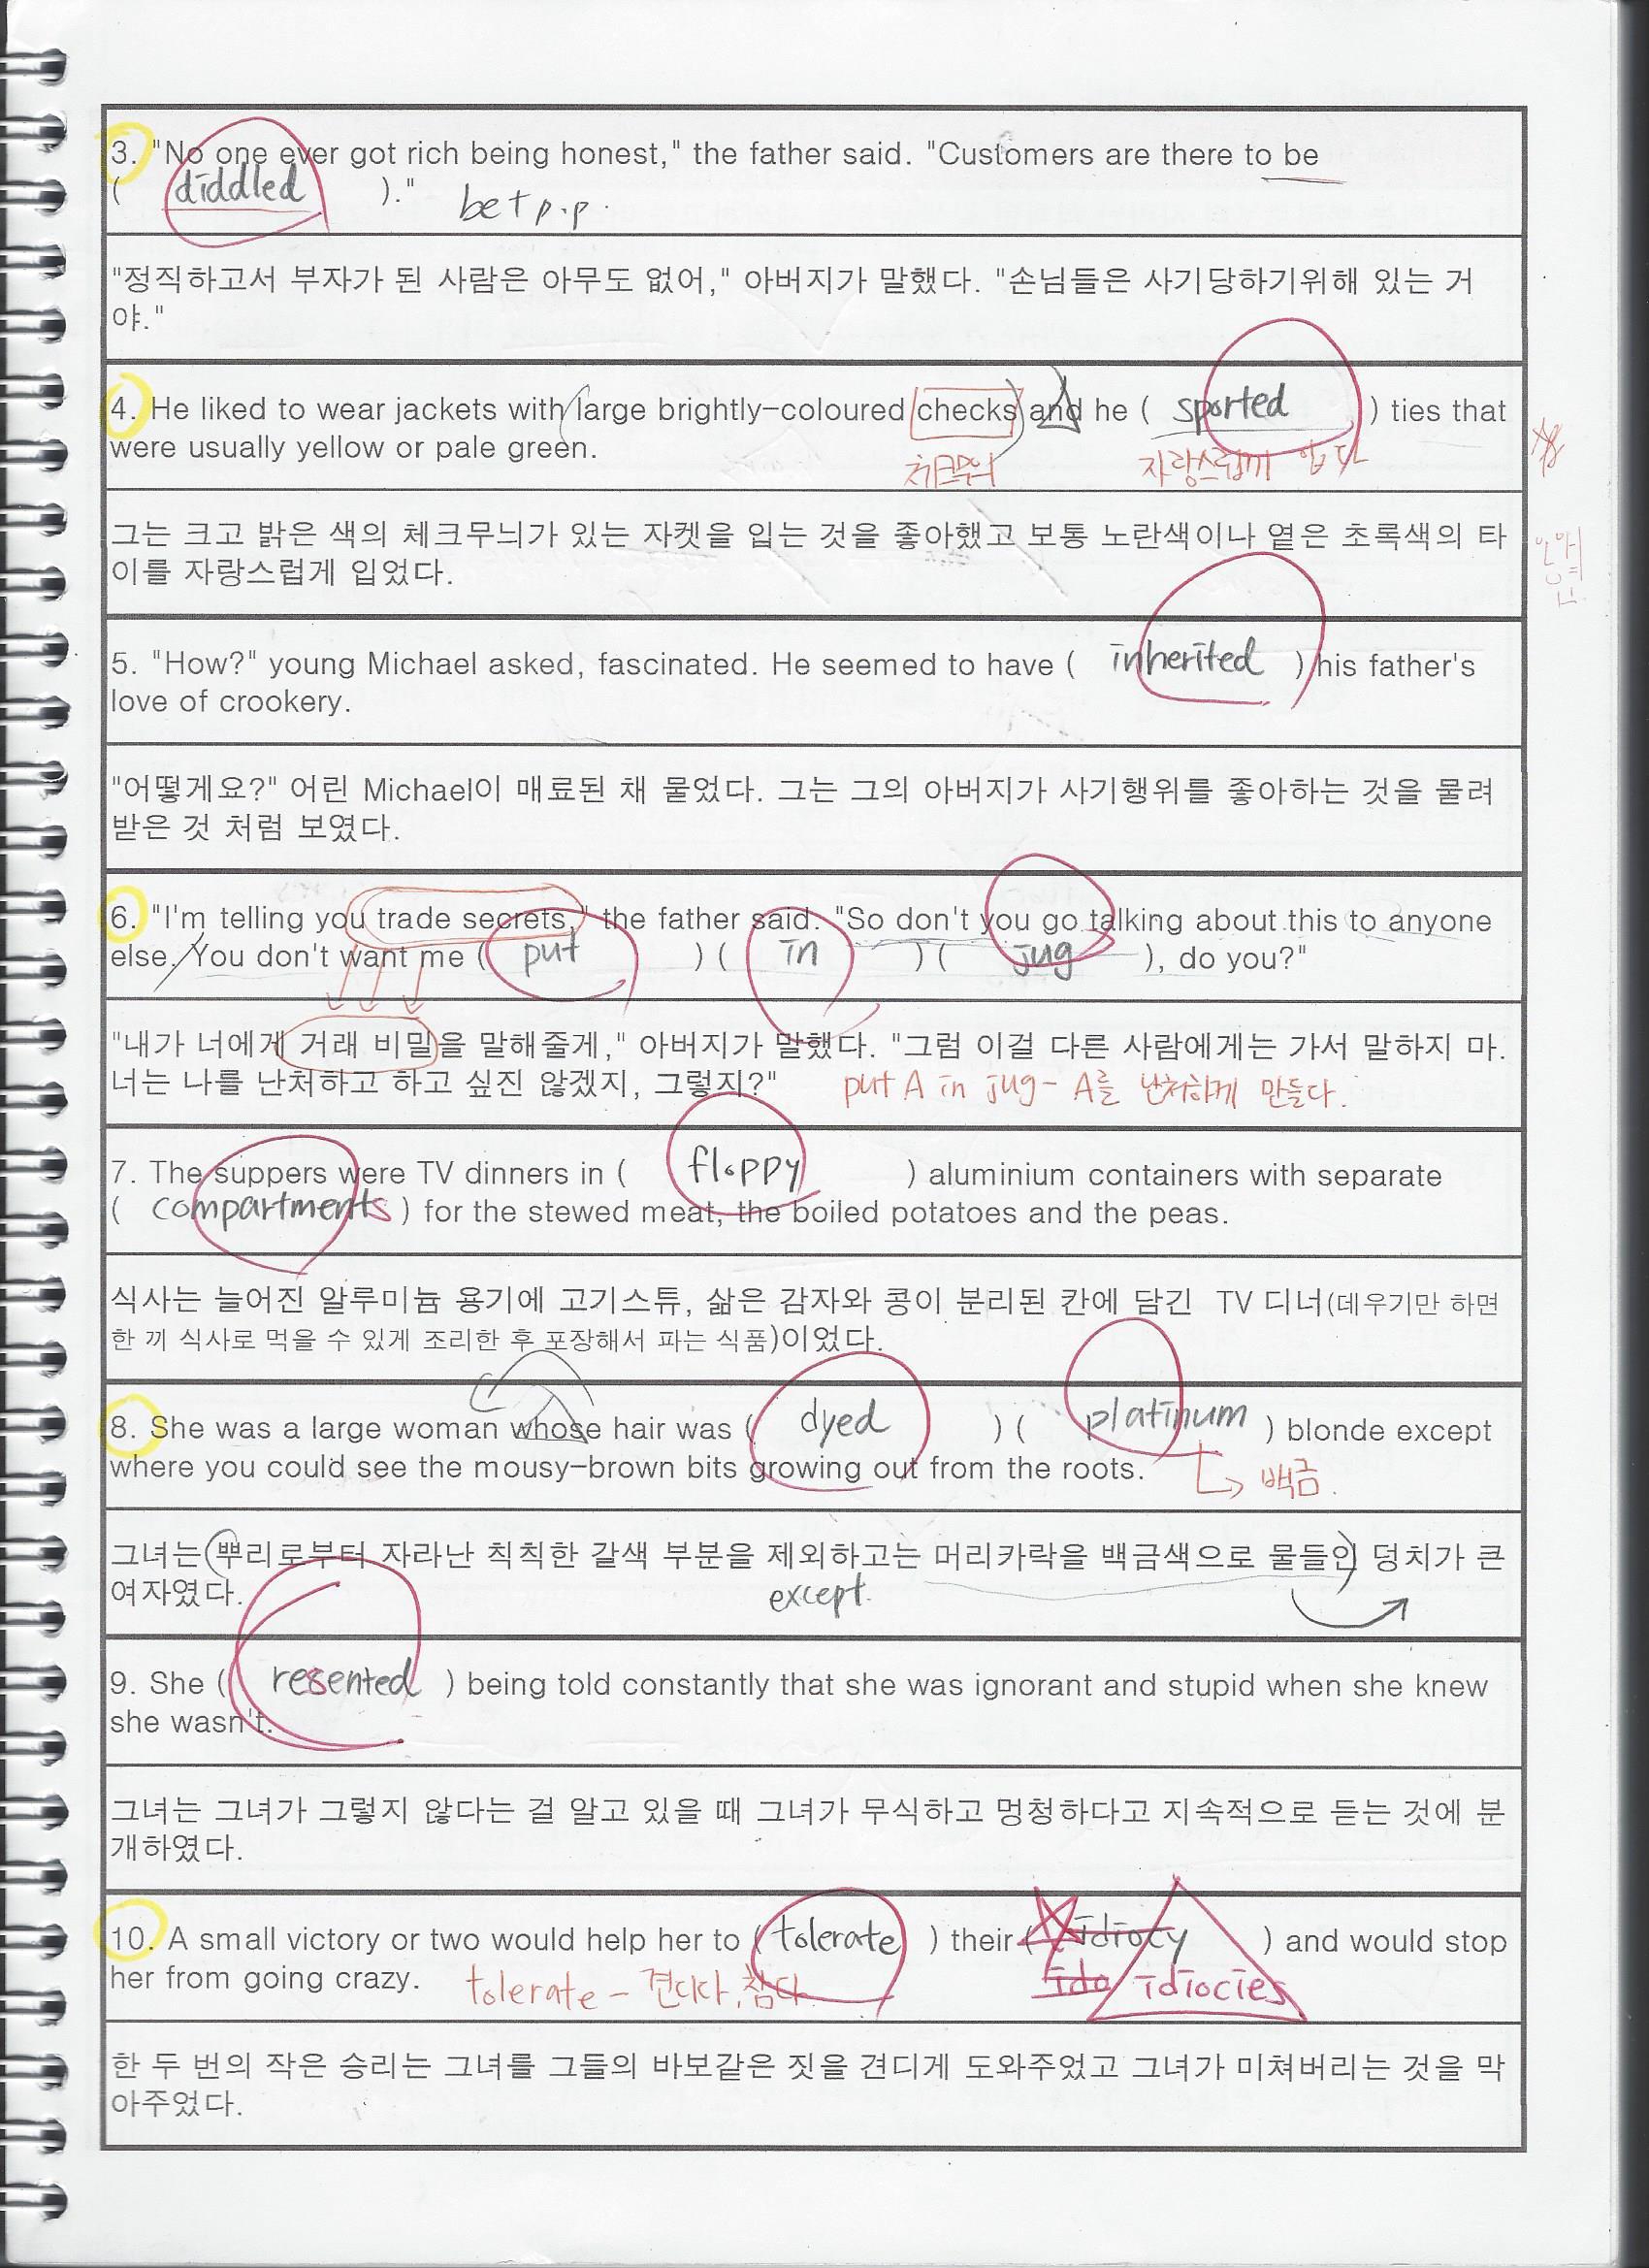 3. "No one ever got rich being honest," the father said. "Customers are there to be
( diddled )." be + p.p.
"정직하고서 부자가 된 사람은 아무도 없어," 아버지가 말했다. "손님들은 사기당하기위해 있는 거
야."
4. He liked to wear jackets with large brightly-coloured checks and he ( sported ) ties that
were usually yellow or pale green.
체크무늬 자랑스럽게 입다
그는 크고 밝은 색의 체크무늬가 있는 자켓을 입는 것을 좋아했고 보통 노란색이나 옅은 초록색의 타
이를 자랑스럽게 입었다.
5. "How?" young Michael asked, fascinated. He seemed to have ( inherited ) his father's
love of crookery.
"어떻게요?" 어린 Michael이 매료된 채 물었다. 그는 그의 아버지가 사기행위를 좋아하는 것을 물려
받은 것 처럼 보였다.
6. "I'm telling you trade secrets," the father said. "So don't you go talking about this to anyone
else. You don't want me ( put ) ( in ) ( jug ), do you?"
"내가 너에게 거래 비밀을 말해줄게," 아버지가 말했다. "그럼 이걸 다른 사람에게는 가서 말하지 마.
너는 나를 난처하고 하고 싶진 않겠지, 그렇지?" put A in jug - A를 난처하게 만들다.
7. The suppers were TV dinners in ( floppy ) aluminium containers with separate
( compartments ) for the stewed meat, the boiled potatoes and the peas.
식사는 늘어진 알루미늄 용기에 고기스튜, 삶은 감자와 콩이 분리된 칸에 담긴 TV 디너(데우기만 하면
한 끼 식사로 먹을 수 있게 조리한 후 포장해서 파는 식품)이었다.
8. She was a large woman whose hair was ( dyed ) ( platinum ) blonde except
where you could see the mousy-brown bits growing out from the roots. 백금.
그녀는 뿌리로부터 자라난 칙칙한 갈색 부분을 제외하고는 머리카락을 백금색으로 물들인 덩치가 큰
여자였다. except.
9. She ( resented ) being told constantly that she was ignorant and stupid when she knew
she wasn't.
그녀는 그녀가 그렇지 않다는 걸 알고 있을 때 그녀가 무식하고 멍청하다고 지속적으로 듣는 것에 분
개하였다.
10. A small victory or two would help her to ( tolerate ) their ( idiocy ) and would stop
her from going crazy. tolerate - 견디다, 참다. ido idiocies
한 두 번의 작은 승리는 그녀를 그들의 바보같은 짓을 견디게 도와주었고 그녀가 미쳐버리는 것을 막
아주었다.